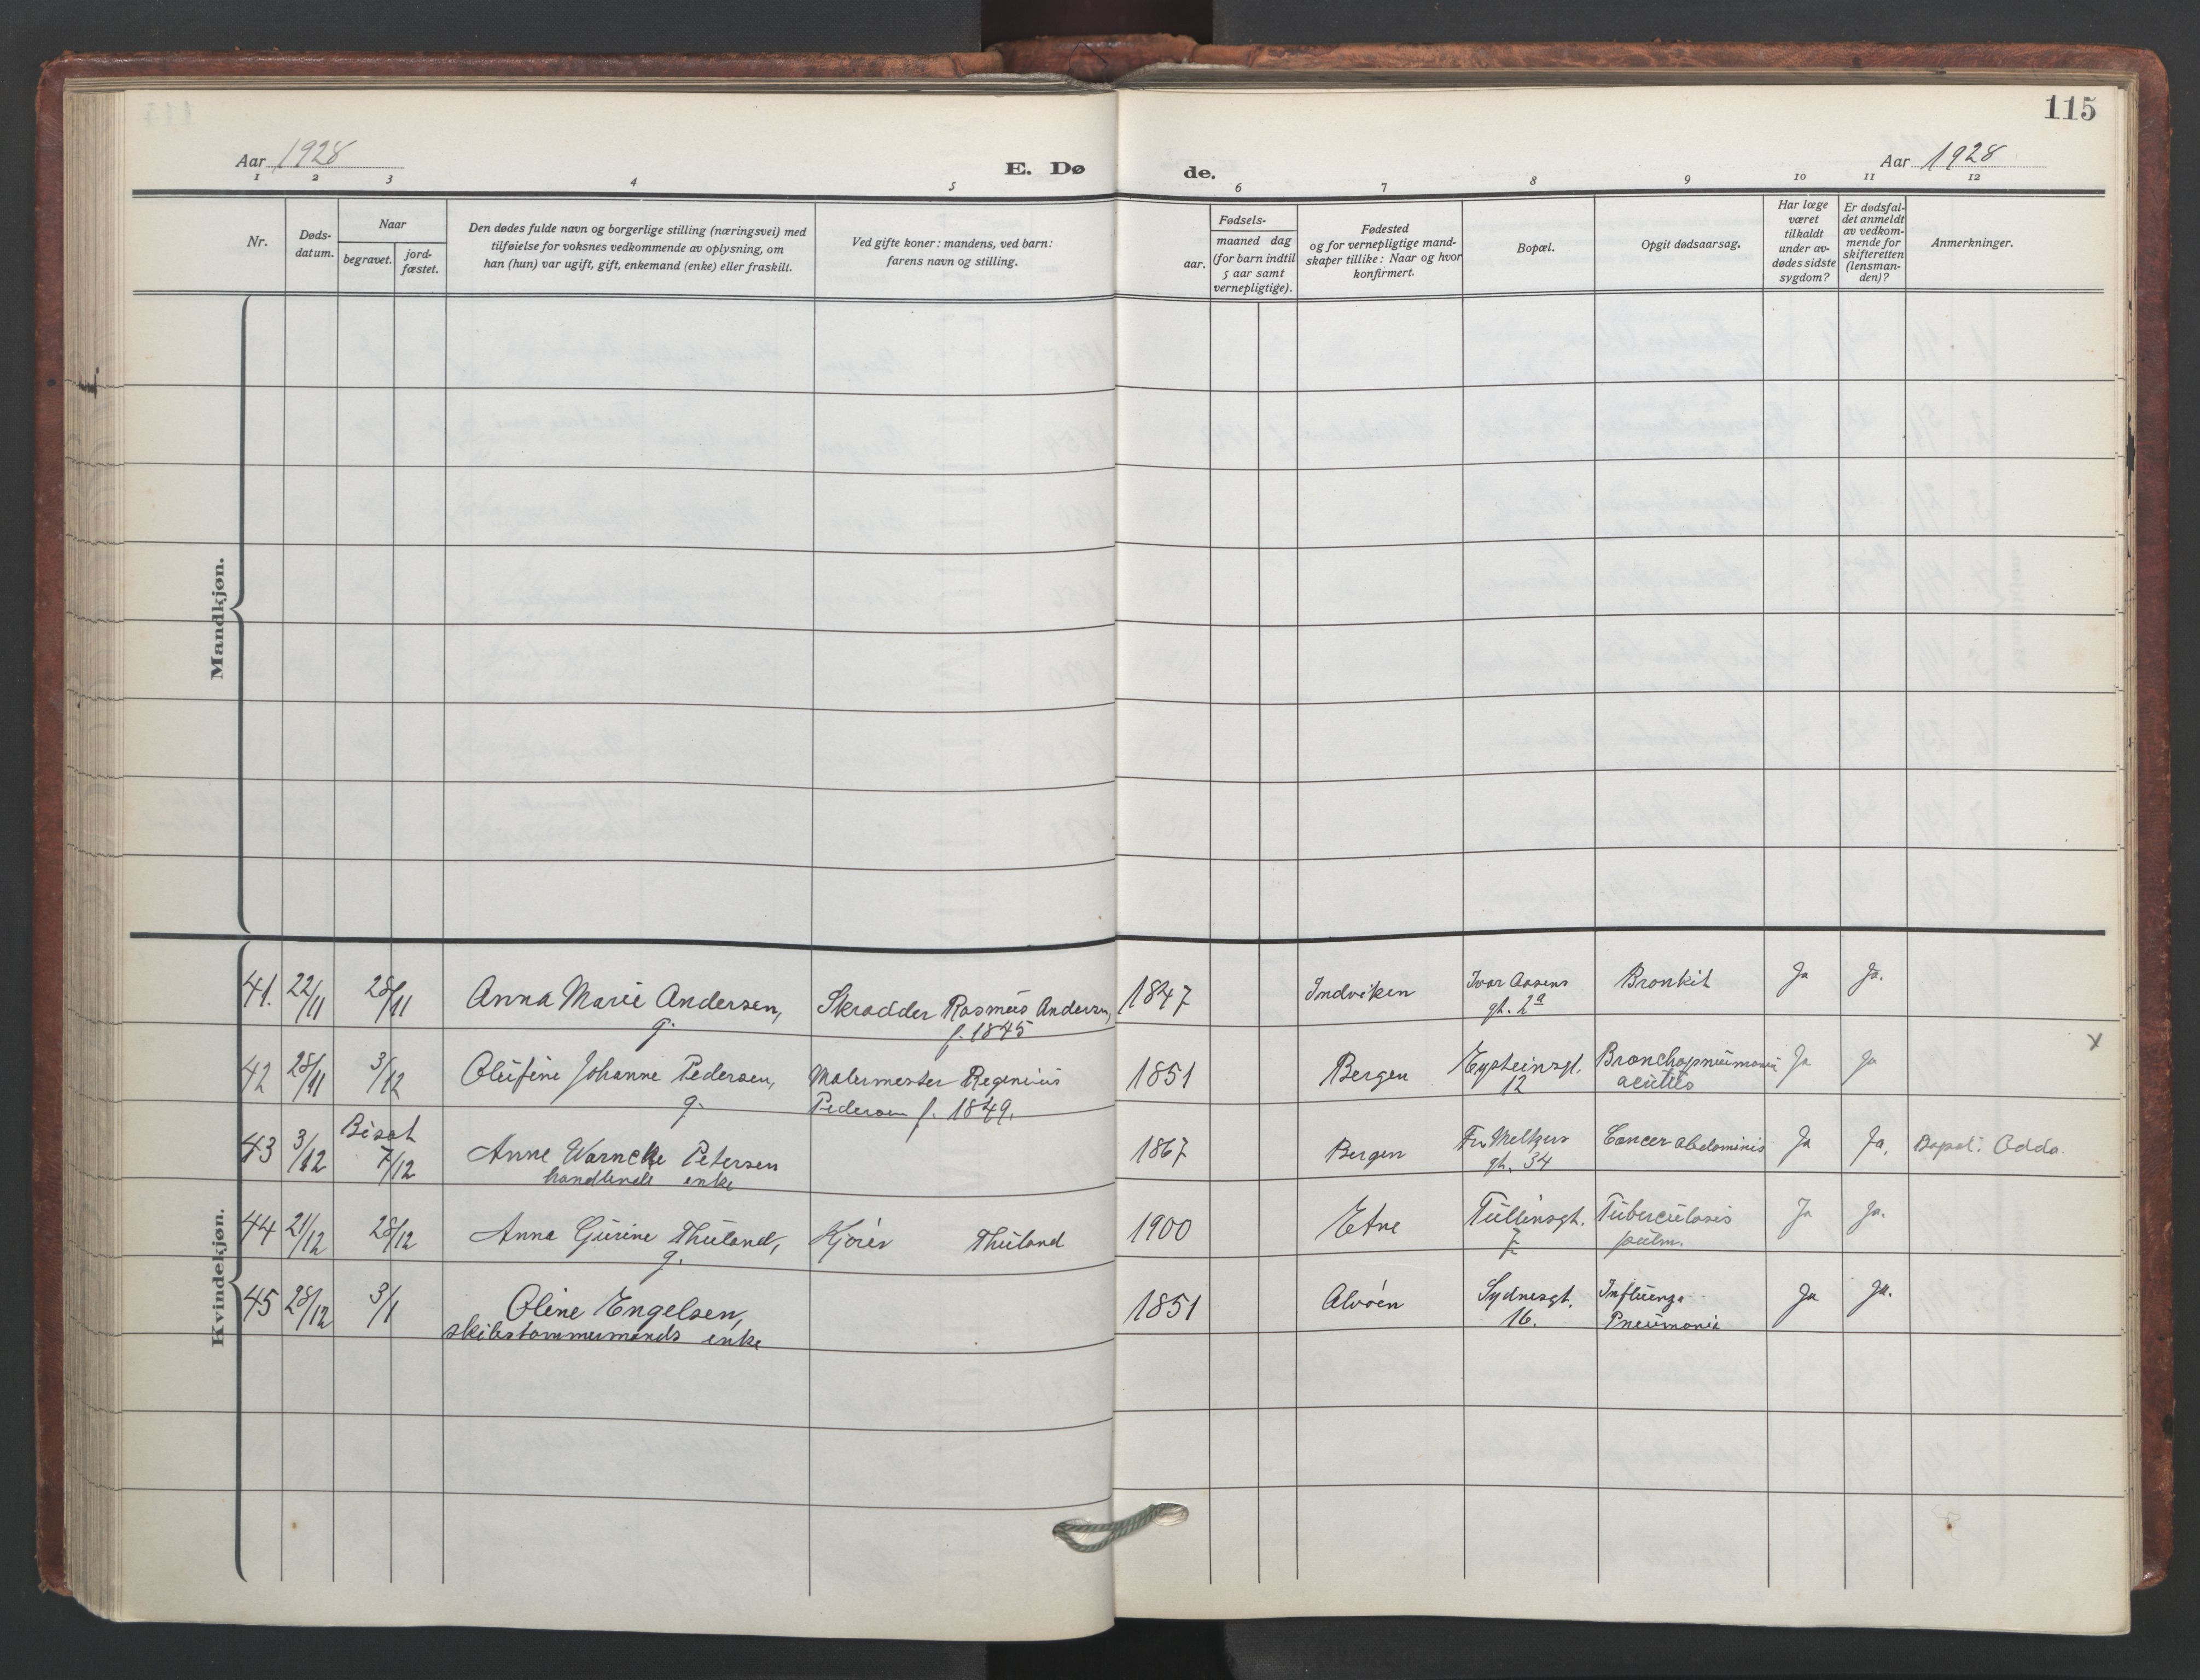 115
Aar 1928
E. Dø de.
Aar 1928
1 2 3 4 5 6 7 8 9 10 11 12
Nr.
Døds-
datum.
Naar
begravet.
jord-
fæstet.
Den dødes fulde navn og borgerlige stilling (næringsvei) med
tilføielse for voksnes vedkommende av oplysning, om
han (hun) var ugift, gift, enkemand (enke) eller fraskilt.
Ved gifte koner: mandens, ved barn:
farens navn og stilling.
Fødsels-
aar.
maaned dag
(for barn indtil
5 aar samt
vernepligtige).
Fødested
og for vernepligtige mand-
skaper tillike: Naar og hvor
konfirmert.
Bopæl.
Opgit dødsaarsag.
Har læge
været
tilkaldt
under av-
dødes sidste
sygdom?
Er dødsfal-
det anmeldt
av vedkom-
mende for
skifteretten
(lensman-
den)?
Anmerkninger.
Mandkjøn.
Kvindekjøn.
41. 22/11 28/11 Anna Marie Andersen, Skrædder Rasmus Andersen, 1847 Indviken Ivar Aasens Bronkit Ja Ja.
g. f. 1845 gt. 2a
x
42 28/11 3/12 Olufine Johanne Pedersen, Malermester Regenius 1851 Bergen Eysteinsgt. Bronchopneumonia Ja Ja
g. Pedersen f. 1849. 12 acutus
Bisat
43 3/12 7/12 Anne Warncke Petersen 1867 Bergen Fr. Meltzers Cancer abdominis Ja Ja, Bopæl: Odda.
handlende enke gt. 34
44 21/12 28/12 Anna Gurine Thuland, Kjører Thuland 1900 Etne Tullinsgt. Tuberculosis Ja Ja.
g. 7 pulm.
45 28/12 3/1 Oline Engelsen, 1851 Alvøen Sydnesgt. Influenza Ja Ja.
skibstømmermands enke 16. Pneumonia